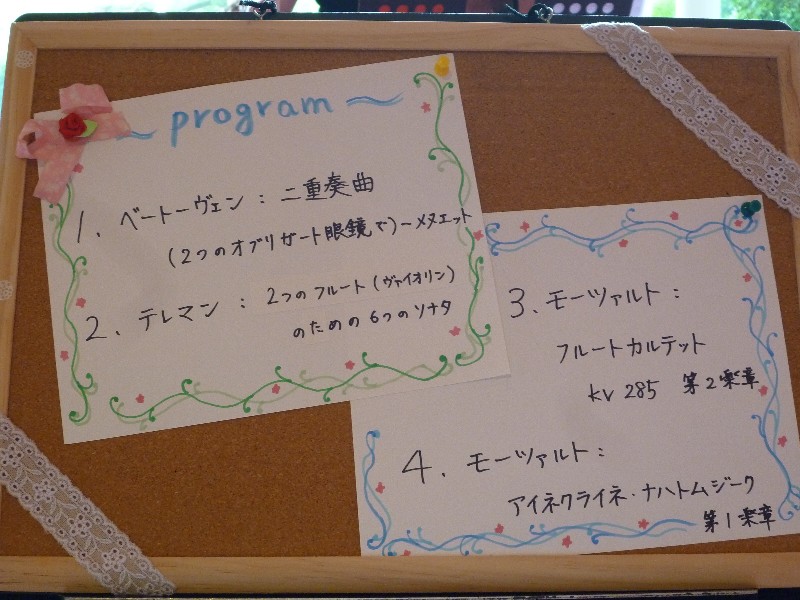 program
1. ベートーヴェン：二重奏曲
(2つのオブリガート眼鏡で)ーメヌエット
2. テレマン：2つのフルート(ヴァイオリン)
のための6つのソナタ
3. モーツァルト：
フルートカルテット
kv 285 第2楽章
4. モーツァルト：
アイネクライネ・ナハトムジーク
第1楽章